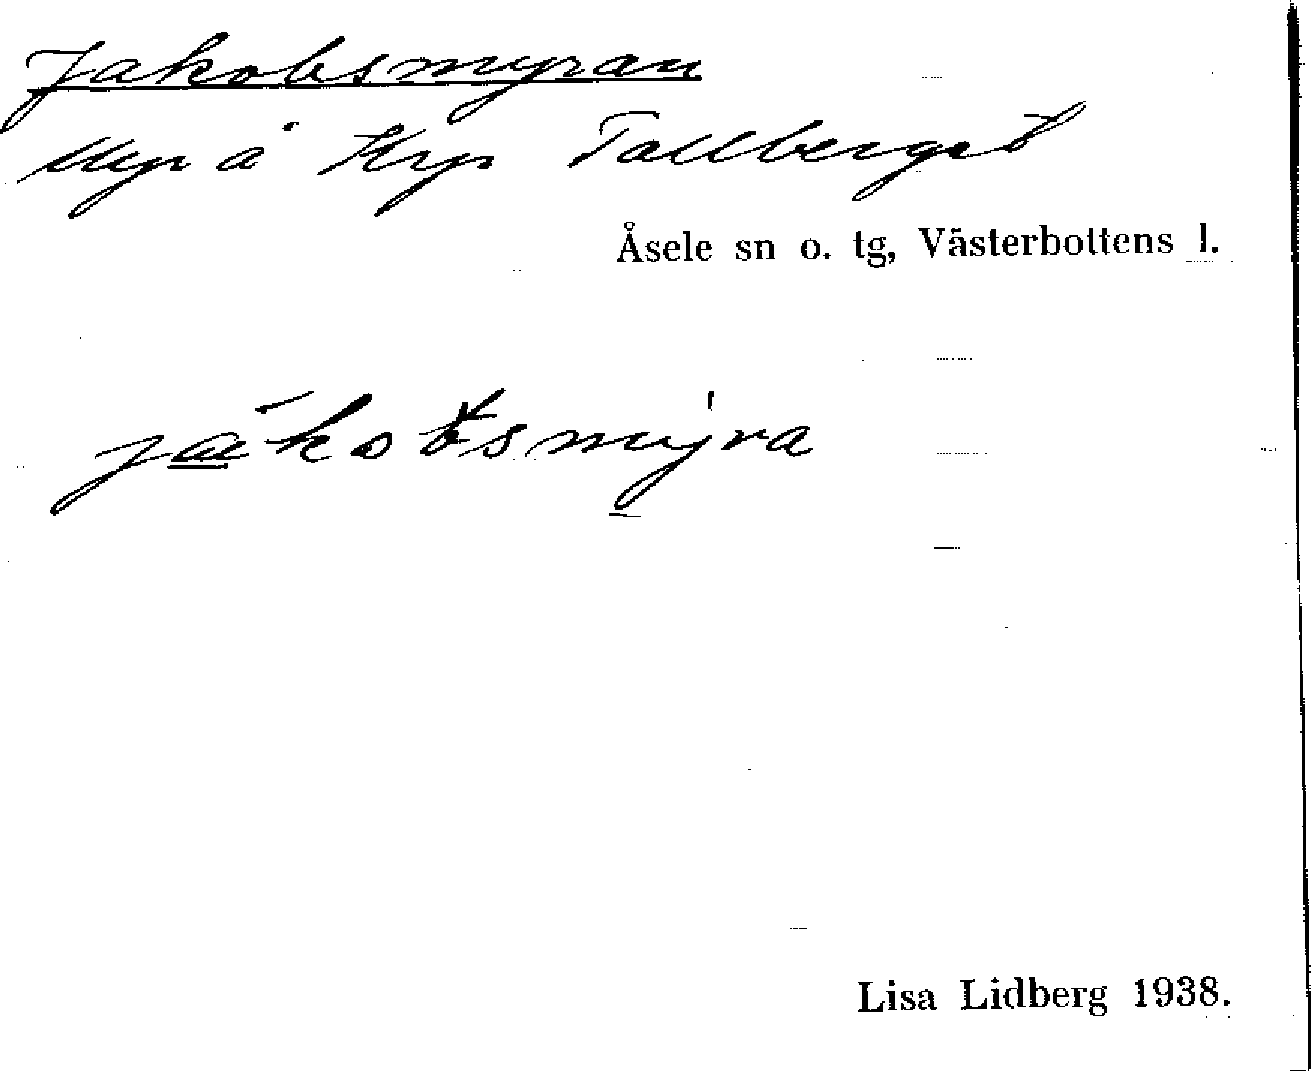 Jakobsmyran
Myr å Krp Tallberget
Åsele sn o. tg, Västerbottens l.
jákobsmy̱̍ra
Lisa Lidberg 1938.